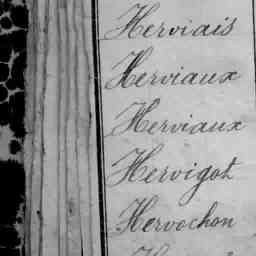 Herviais
Herviaux
Herviaux
Hervigot
Hervochon